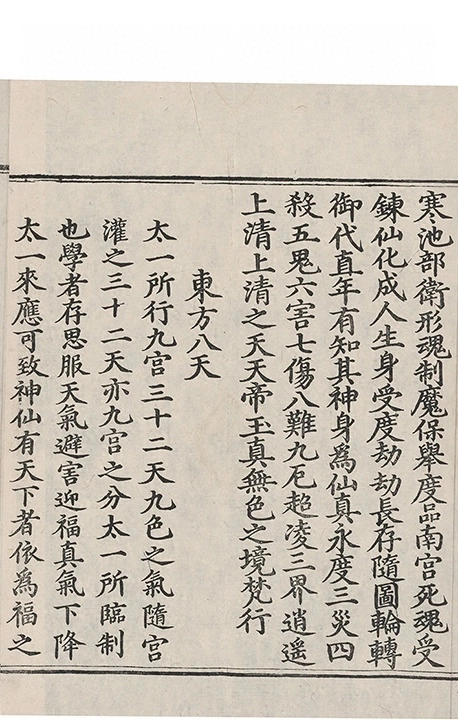 寒池部衛形魂制魔保舉度品南宮死魂受
鍊仙化成人生身受度劫劫長存隨圖輪轉
御代直年有知其神身為仙真永度三災四
殺五鬼六害七傷八難九厄超凌三界逍遥
上清上清之天天帝玉真無色之境梵行
東方八天
太一所行九宮三十二天九色之氣隨宮
灌之三十二天亦九宮之分太一所臨制
也學者存思服天氣避害迎福真氣下降
太一來應可致神仙有天下者依為福之